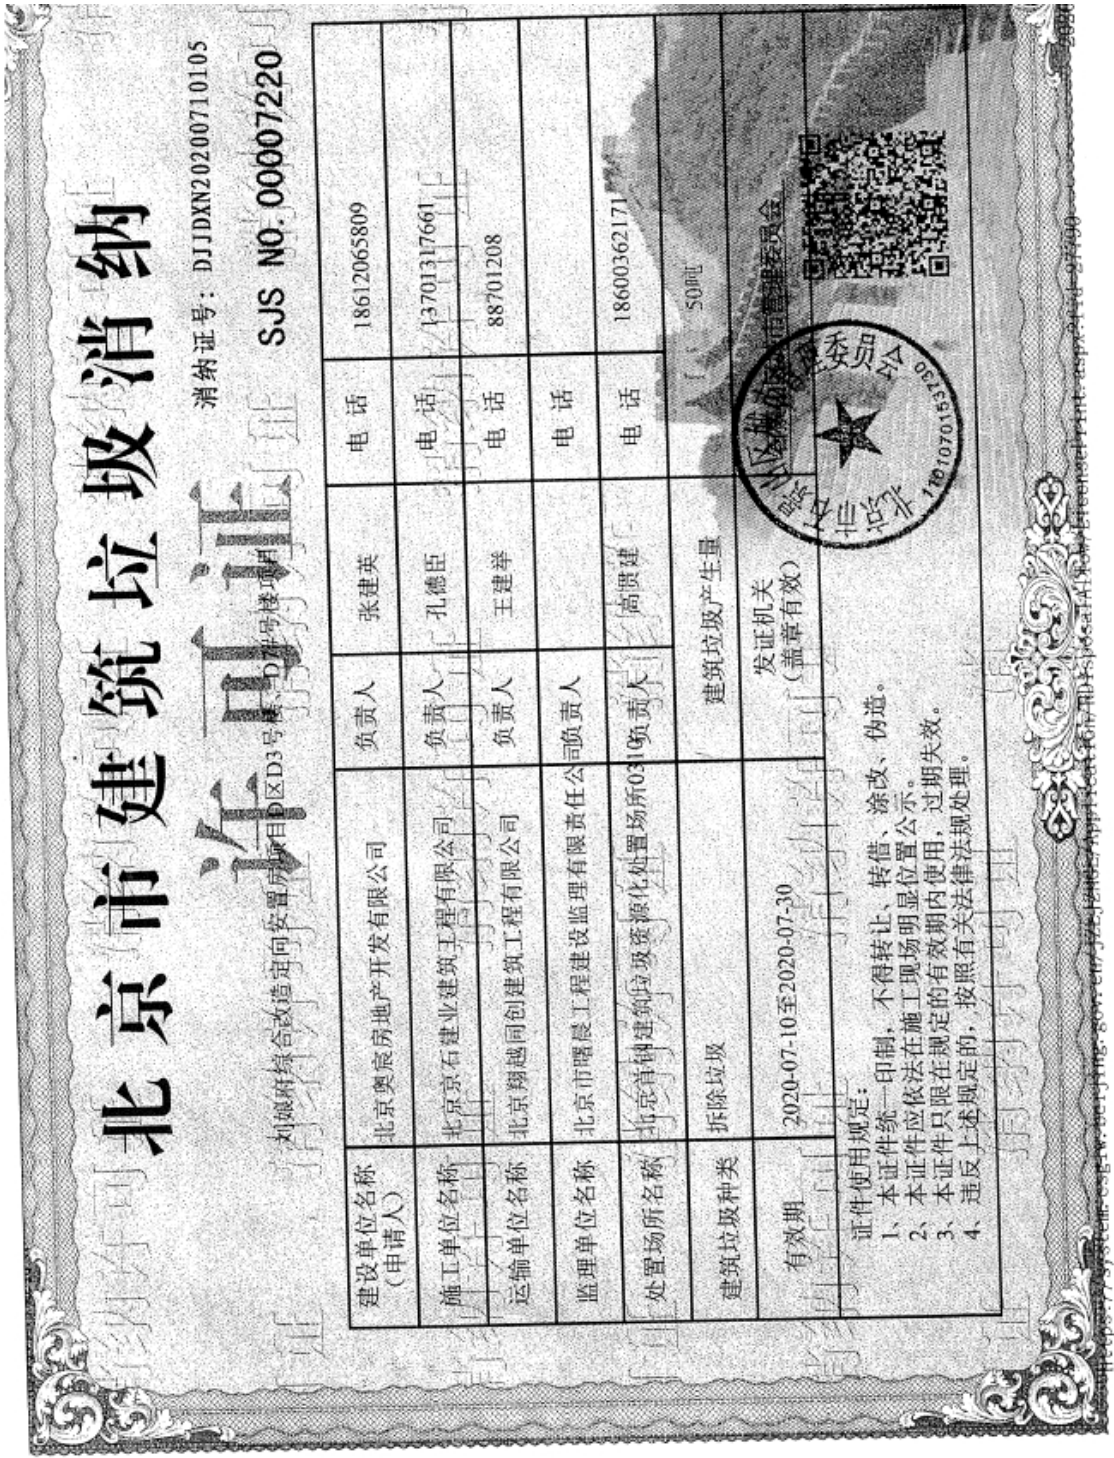 北京市建筑垃圾消纳
许可证
消纳证号：DJJDXN2020071​0105
SJS NO.00007220
刘娘府综合改造定向安置房项目D区D3号楼、D7#号楼项目
建设单位名称（申请人） 北京奥宸房地产开发有限公司 负责人 张建英 电 话 18612065809
施工单位名称 北京京石建业建筑工程有限公司 负责人 孔德臣 电 话 13701317661
运输单位名称 北京翔越同创建筑工程有限公司 负责人 王建举 电 话 88701208
监理单位名称 北京市曙晨工程建设监理有限责任公司 负责人 电 话
处置场所名称 北京首钢建筑垃圾资源化处置场所0310 负责人 高贤建 电 话 18600362171
建筑垃圾种类 拆除垃圾 建筑垃圾产生量 50吨
有效期 2020-07-10至2020-07-30 发证机关（盖章有效）
1101070153730
证件使用规定：
1、本证件统一印制，不得转让、转借、涂改、伪造。
2、本证件应依法在施工现场明显位置公示。
3、本证件只限在规定的有效期内使用，过期失效。
4、违反上述规定的，按照有关法律法规处理。